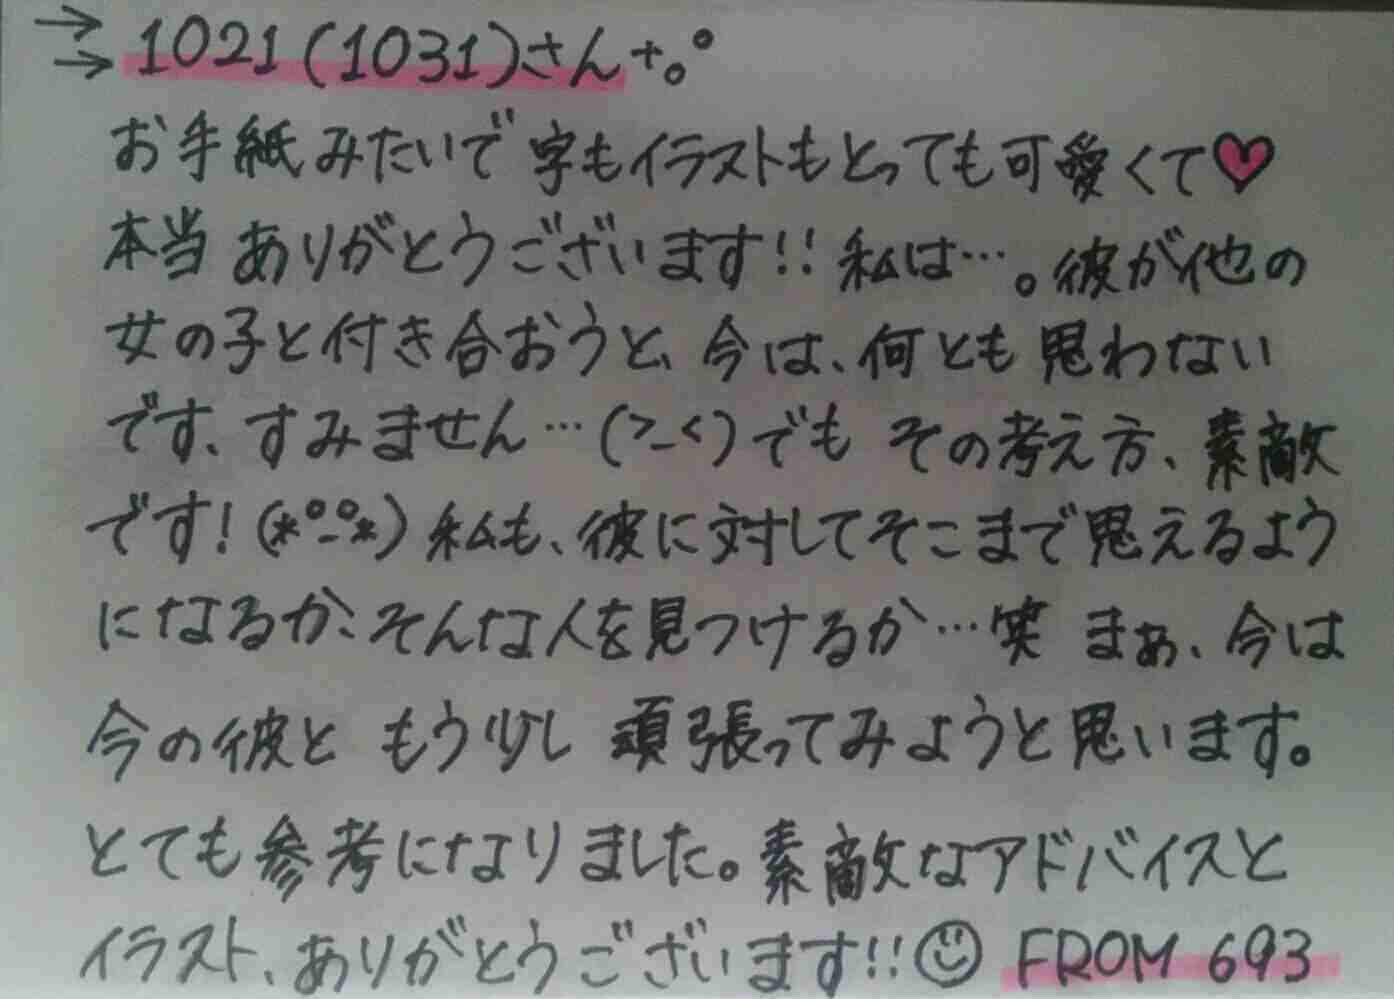 →→ 1021(1031)さん+。°
お手紙みたいで字もイラストもとっても可愛くて♥
本当ありがとうございます!!私は…。彼が他の
女の子と付き合おうと、今は、何とも思わない
です、すみません…(>_<)でもその考え方、素敵
です!(*°_°*)私も、彼に対してそこまで思えるよう
になるか、そんな人を見つけるか…笑 まぁ、今は
今の彼と もう少し 頑張ってみようと思います。
とても参考になりました。素敵なアドバイスと
イラスト、ありがとうございます!!☺ FROM 693